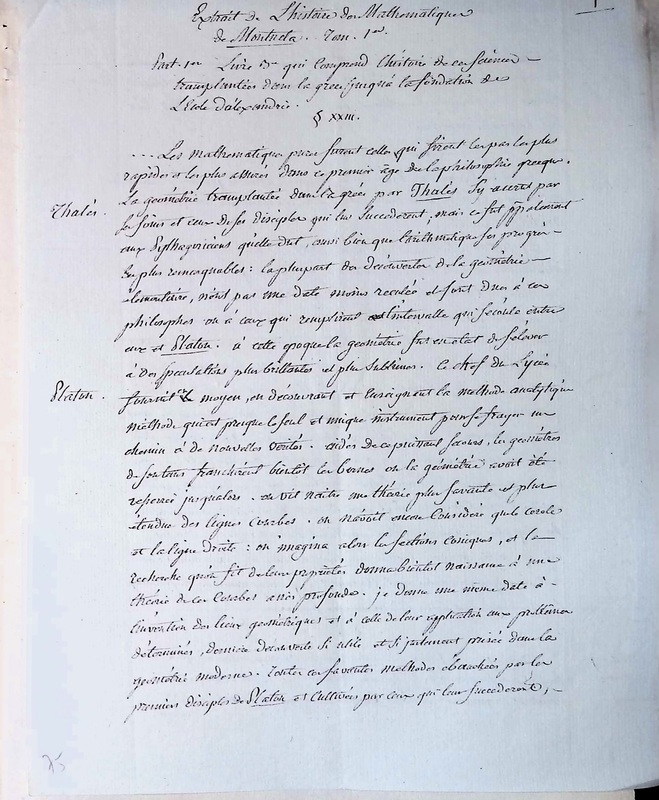 1
Extrait de L'histoire des Mathematiques
de Montucla. Tom. 1er.
Part. 1ere Livre 3e qui Comprend l'histoire de ces sciences
transplantées dans la grece jusqu'à la fondation de
L'Ecole d'alexandrie.
§ XXIII.
.... Les mathematiques pures furent celles qui firent les pas les plus
rapides et les plus assurés dans ce premier âge de la philosophie grecque.
La geometrie transplantée dans la grece par Thalès s'y accrut par
Thalès.
ses soins et ceux de ses disciples qui lui succederent; mais ce fut
aux Pythagoriciens qu'elle dut, aussi bien que l'arithmetique ses progrès
les plus remarquables: la pluspart des decouvertes de la geometrie
elementaire, n'ont pas une date moins reculée et sont dues à ces
philosophes ou à ceux qui remplirent l'intervalle qui s'écoule entre
eux et Platon. à cette epoque la geometrie fut en etat de s'elever
à des speculations plus brillantes et plus sublimes. Ce chef du Lycée
Platon.
fournit moyen, en decouvrant et enseignant la methode analytique
methode qui est presque le seul et unique instrument pour se frayer un
chemin à de nouvelles verités. aidés de ce puissant secours, les geometres
de son tems franchirent bientôt les bornes où la géometrie avoit été
resserrée jusqu'alors. on vit naître une theorie plus savante et plus
etendue des lignes Courbes. on n'avoit encore Consideré que le cercle
et la ligne droite: on imagina alors les sections coniques, et la
recherche qu'on fit de leurs proprietés donna bientôt naissance à une
theorie de ces Courbes assés profonde. je donne une meme date à
l'invention des lieux geometriques et à celle de leur application aux problêmes
determinés, derniere decouverte si utile et si justement prisée dans la
geometrie moderne. Toutes ces savantes methodes ebauchées par les
premiers disciples de Platon et Cultivées par ceux qui leur succederent,